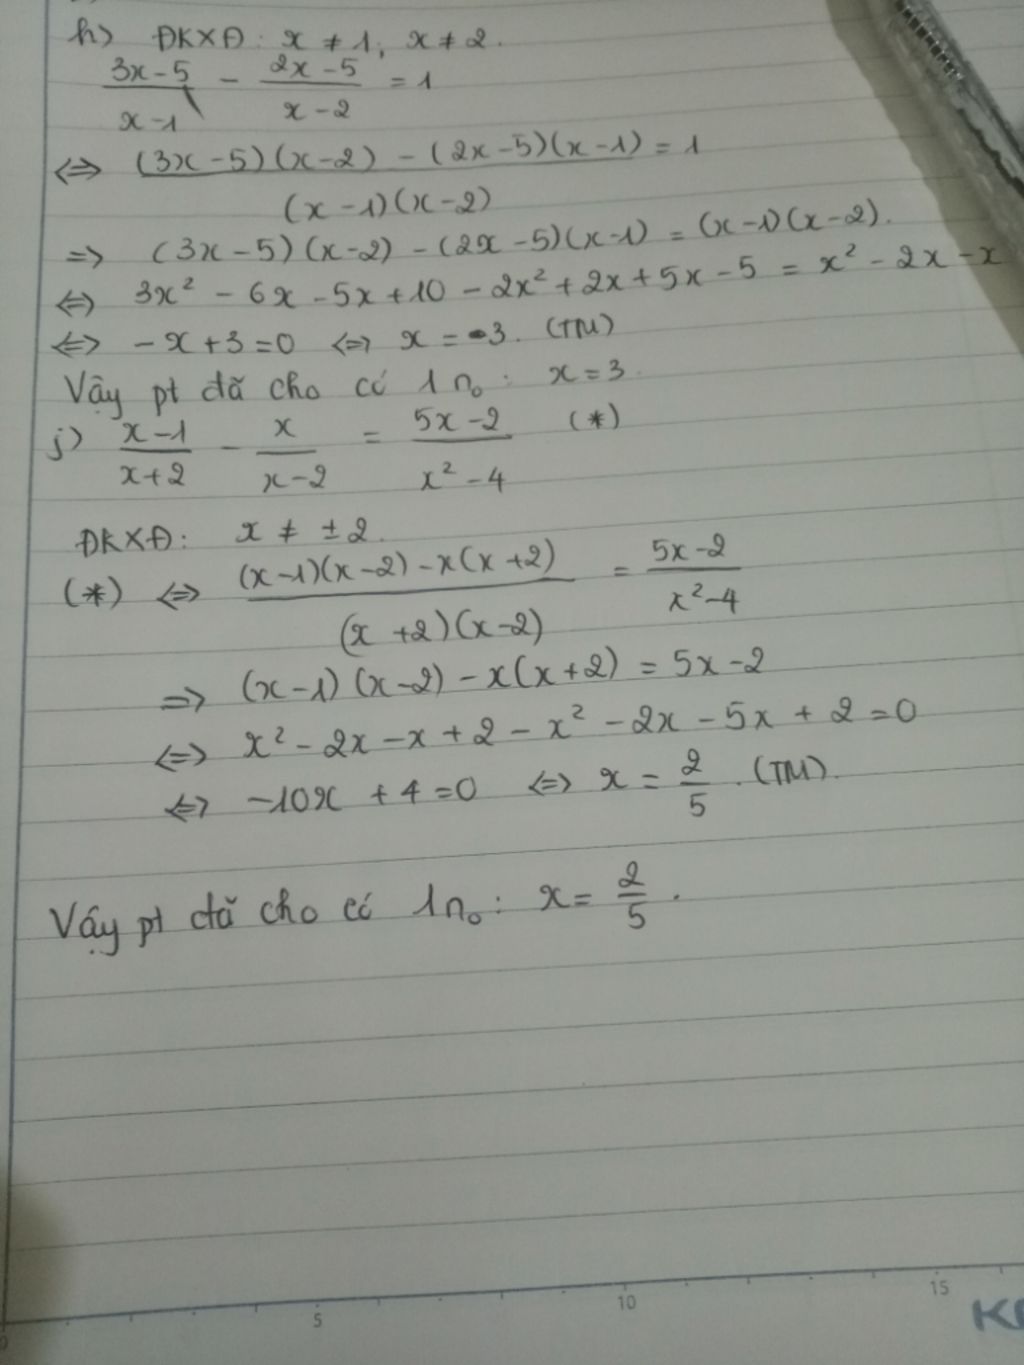 h) ĐKXĐ: x ≠ 1; x ≠ 2.
(3x-5)/(x-1) - (2x-5)/(x-2) = 1
<=> ((3x-5)(x-2) - (2x-5)(x-1))/((x-1)(x-2)) = 1
=> (3x-5)(x-2) - (2x-5)(x-1) = (x-1)(x-2).
<=> 3x² - 6x - 5x + 10 - 2x² + 2x + 5x - 5 = x² - 2x - x
<=> -x + 3 = 0 <=> x = 3. (TM)
Vậy pt đã cho có 1 n₀: x = 3.
j) (x-1)/(x+2) - x/(x-2) = (5x-2)/(x²-4) (*)
ĐKXĐ: x ≠ ±2.
(*) <=> ((x-1)(x-2) - x(x+2))/((x+2)(x-2)) = (5x-2)/(x²-4)
=> (x-1)(x-2) - x(x+2) = 5x-2
<=> x² - 2x - x + 2 - x² - 2x - 5x + 2 = 0
<=> -10x + 4 = 0 <=> x = 2/5. (TM).
Vậy pt đã cho có 1 n₀: x = 2/5.
0 5 10 15